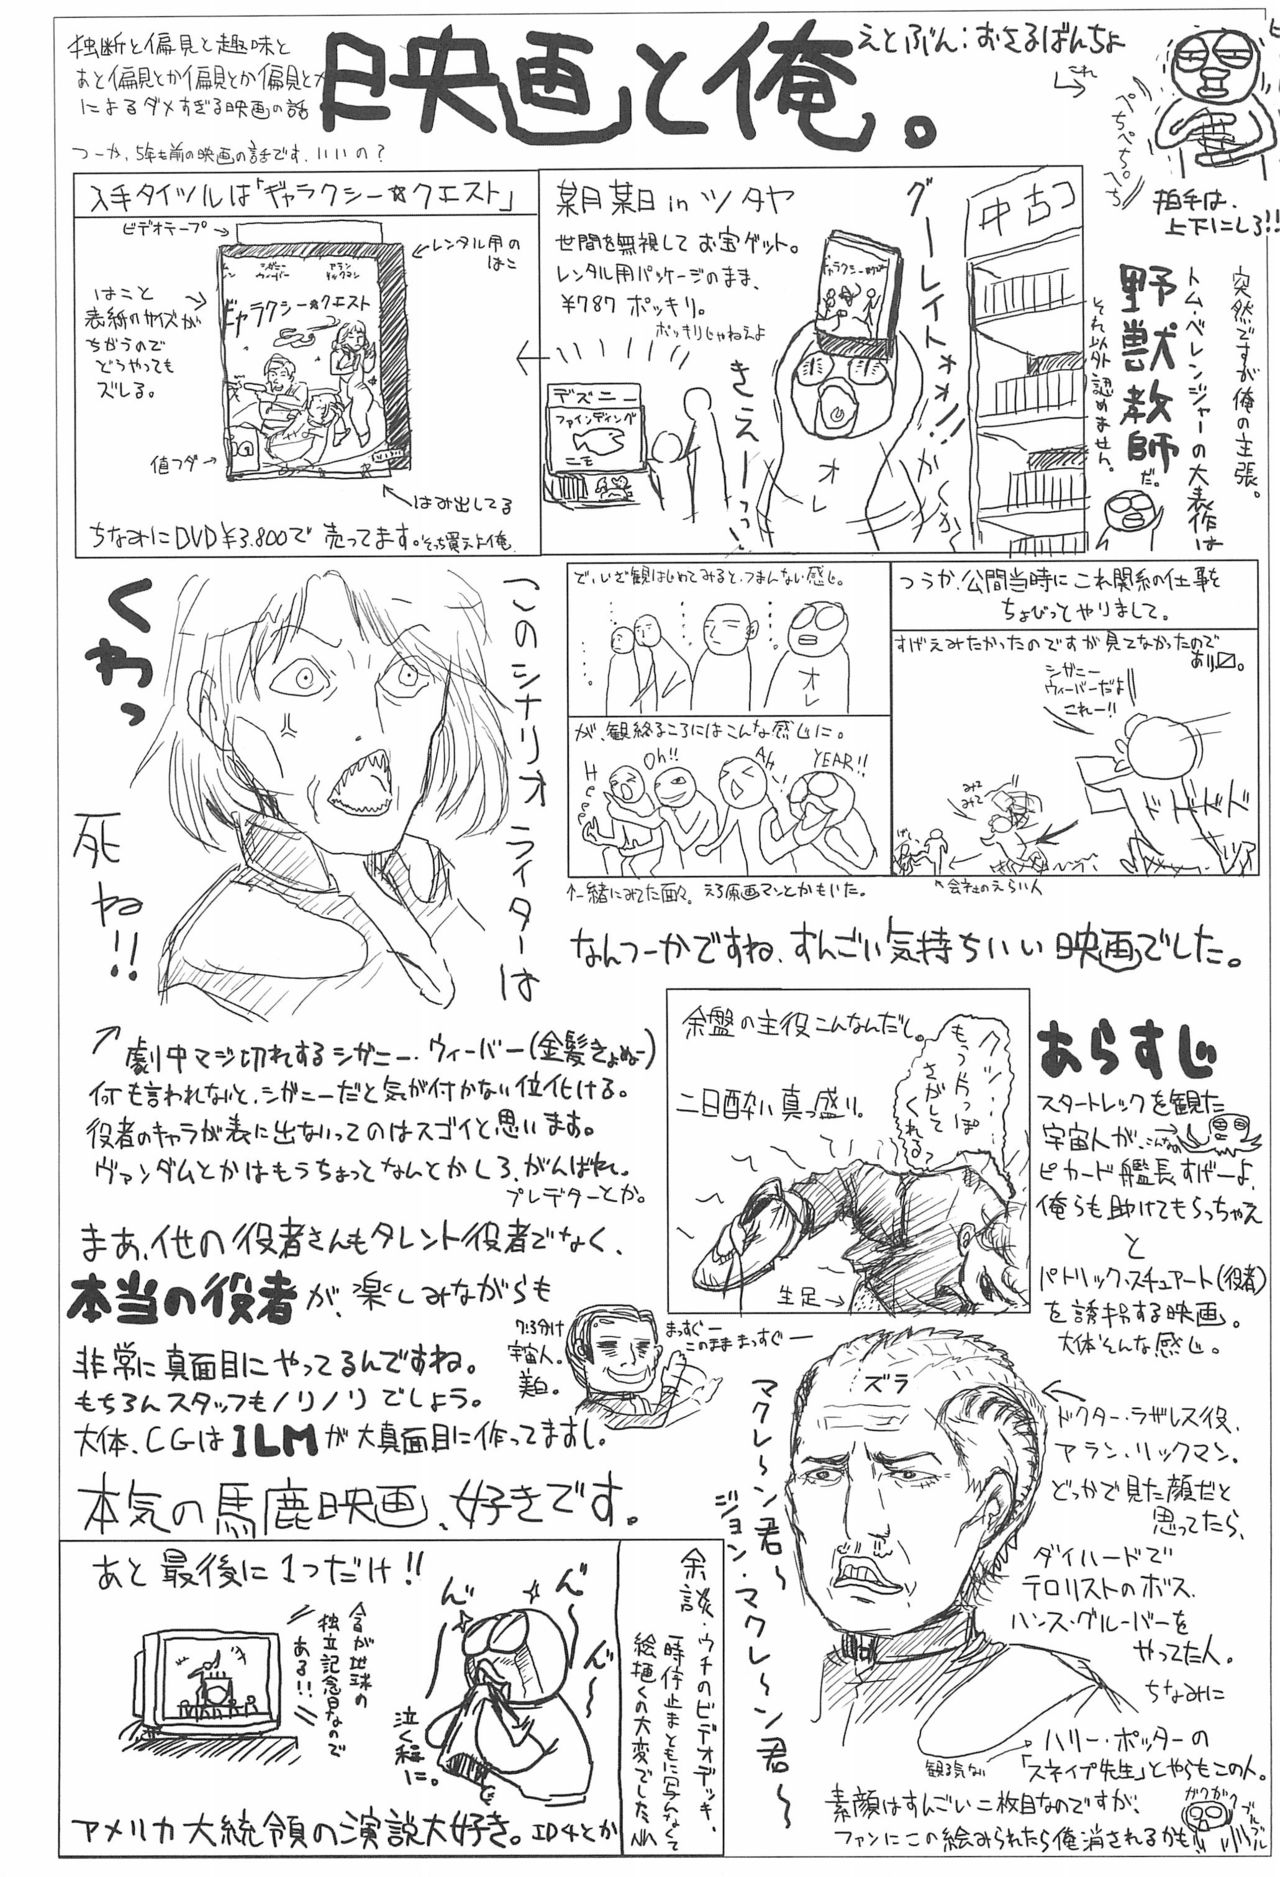 独断と偏見と趣味と
あと偏見とか偏見とか偏見とか
によるダメすぎる映画の話
つーか、5年も前の映画の話です、いいの?
映画と俺。
えとぶん:おさるばんちょ
これ
ぺちぺちぺち
拍手は、
上下にしろ!!
入手タイツルは「ギャラクシー☆クエスト」
ビデオテープ
レンタル用の
はこ
シガニー
ウィーバー
アラン
リックマン
ギャラクシー☆クエスト
はこと
表紙のサイズが
ちがうので
どうやっても
ズレる。
値フダ
はみ出してる
ちなみにDVD¥3.800で売ってます。そっち買えよ俺
某月某日inツタヤ
世間を無視してお宝ゲット。
レンタル用パッケージのまま、
¥787ポッキリ。
ポッキリじゃねえよ
デズニー
ファインディング
ニモ
グーレイトォォ!!
きえーーっっ!
がくがく
オレ
中古コ
突然ですが俺の主張。
トム・ベレンジャーの大表作は
野獣教師だ。
それ以外認めません。
くわっ
死ね!!
このシナリオライターは
で、いざ観はじめてみると、つまんない感じ。
オレ
が、観終るころにはこんな感じに。
H
Oh!!
AH
YEAR!!
↑一緒にみてた面々。えろ原画マンとかもいた。
つうか、公開当時にこれ関系の仕事を
ちょびっとやりまして。
すげえみたかったのですが見てなかったので
あり〼。
シガニー
ウィーバーだよ
これー!!
みて
みて
ドドドド
会社のえらい人
なんつーかですね、すんごい気持ちいい映画でした。
↗劇中マジ切れするシガニー・ウィーバー(金髪きょぬー)
何も言われないと、シガニーだと気が付かない位化ける。
役者のキャラが表に出ないってのはスゴイと思います。
ヴァンダムとかはもうちょっとなんとかしろ、がんばれ。
プレデターとか。
まあ、他の役者さんもタレント役者でなく、
本当の役者が、楽しみながらも
非常に真面目にやってるんですね。
もちろんスタッフもノリノリでしょう。
大体、CGはILMが大真面目に作ってますし。
本気の馬鹿映画、好きです。
7:3分け
宇宙人。
美白。
まっすぐー
このまままっすぐー
序盤の主役こんなんだし。
二日酔い真っ盛り。
生足
あらすじ
スタートレックを観た
宇宙人が、こんなの
ピカード艦長すげーよ、
俺らも助けてもらっちゃえ
と
パトリック・スチュアート(役者)
を誘拐する映画。
大体そんな感じ。
マクレ〜ン君〜
ジョン・マクレ〜ン君〜
ズラ
ドクター・ラザレス役、
アラン・リックマン。
どっかで見た顔だと
思ってたら、
ダイハードで
テロリストのボス、
ハンス・グルーバーを
やってた人。
ちなみに
ハリー・ポッターの
「スネイプ先生」とやらもこの人。
観る気ない
素顔はすんごい二枚目なのですが、
ファンにこの絵みられたら俺消されるかも
ガクガク
ブルブル
あと最後に1つだけ!!
今日が地球の
独立記念日なので
ある!!
泣く程に。
アメリカ大統領の演説大好き。ID4とか
余談・ウチのビデオデッキ、
一時停止まともに写んなくて
絵描くの大変でした。